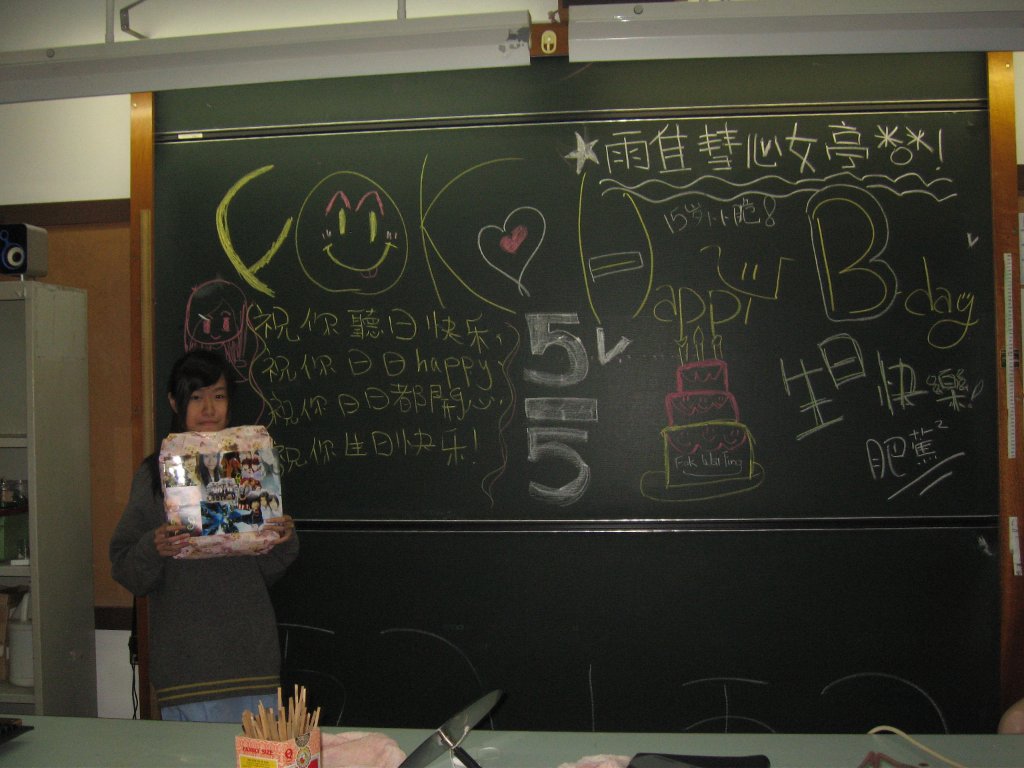 雨佳彗心女亭
FOK
Happi B-day
祝你聽日快乐,
祝你日日happy,
祝你日日都開心,
祝你生日快乐!
5
5
生日快樂!
肥蕉²
Fok Wai Ting
FAMILY SIZE